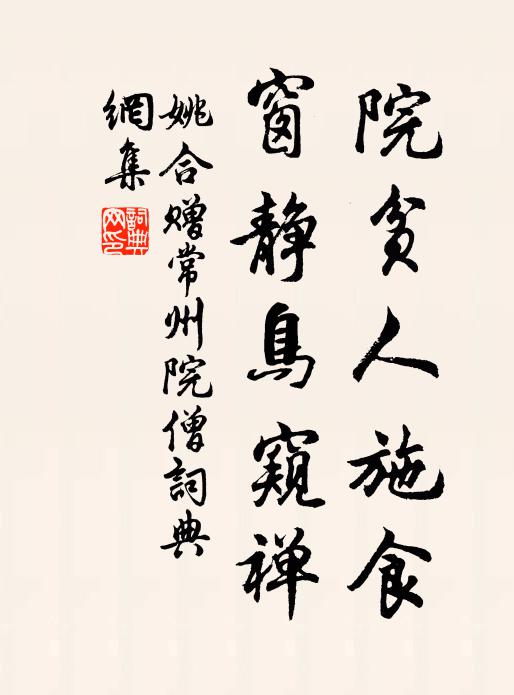 院贫人施食
窗静鳥窥禅
姚合赠常州院僧詞典
網集
詞典
网印